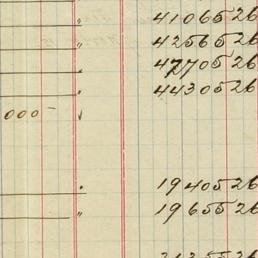 " 4106526
" 4256526
" 4770526
" 4430526
000 -
" 1940526
" 1965526